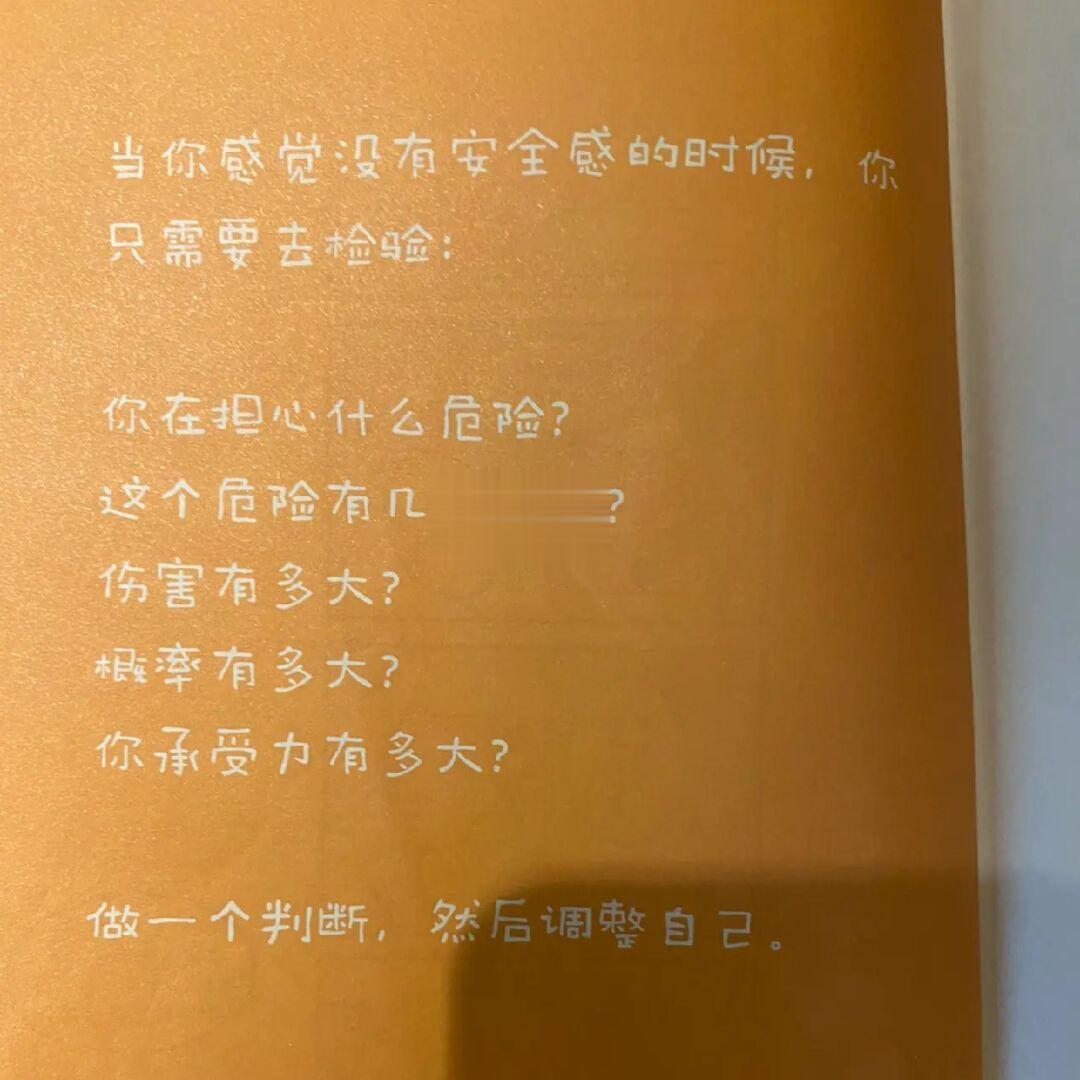 当你感觉没有安全感的时候，你
只需要去检验：
你在担心什么危险？
这个危险有几？
伤害有多大？
概率有多大？
你承受力有多大？
做一个判断，然后调整自己。